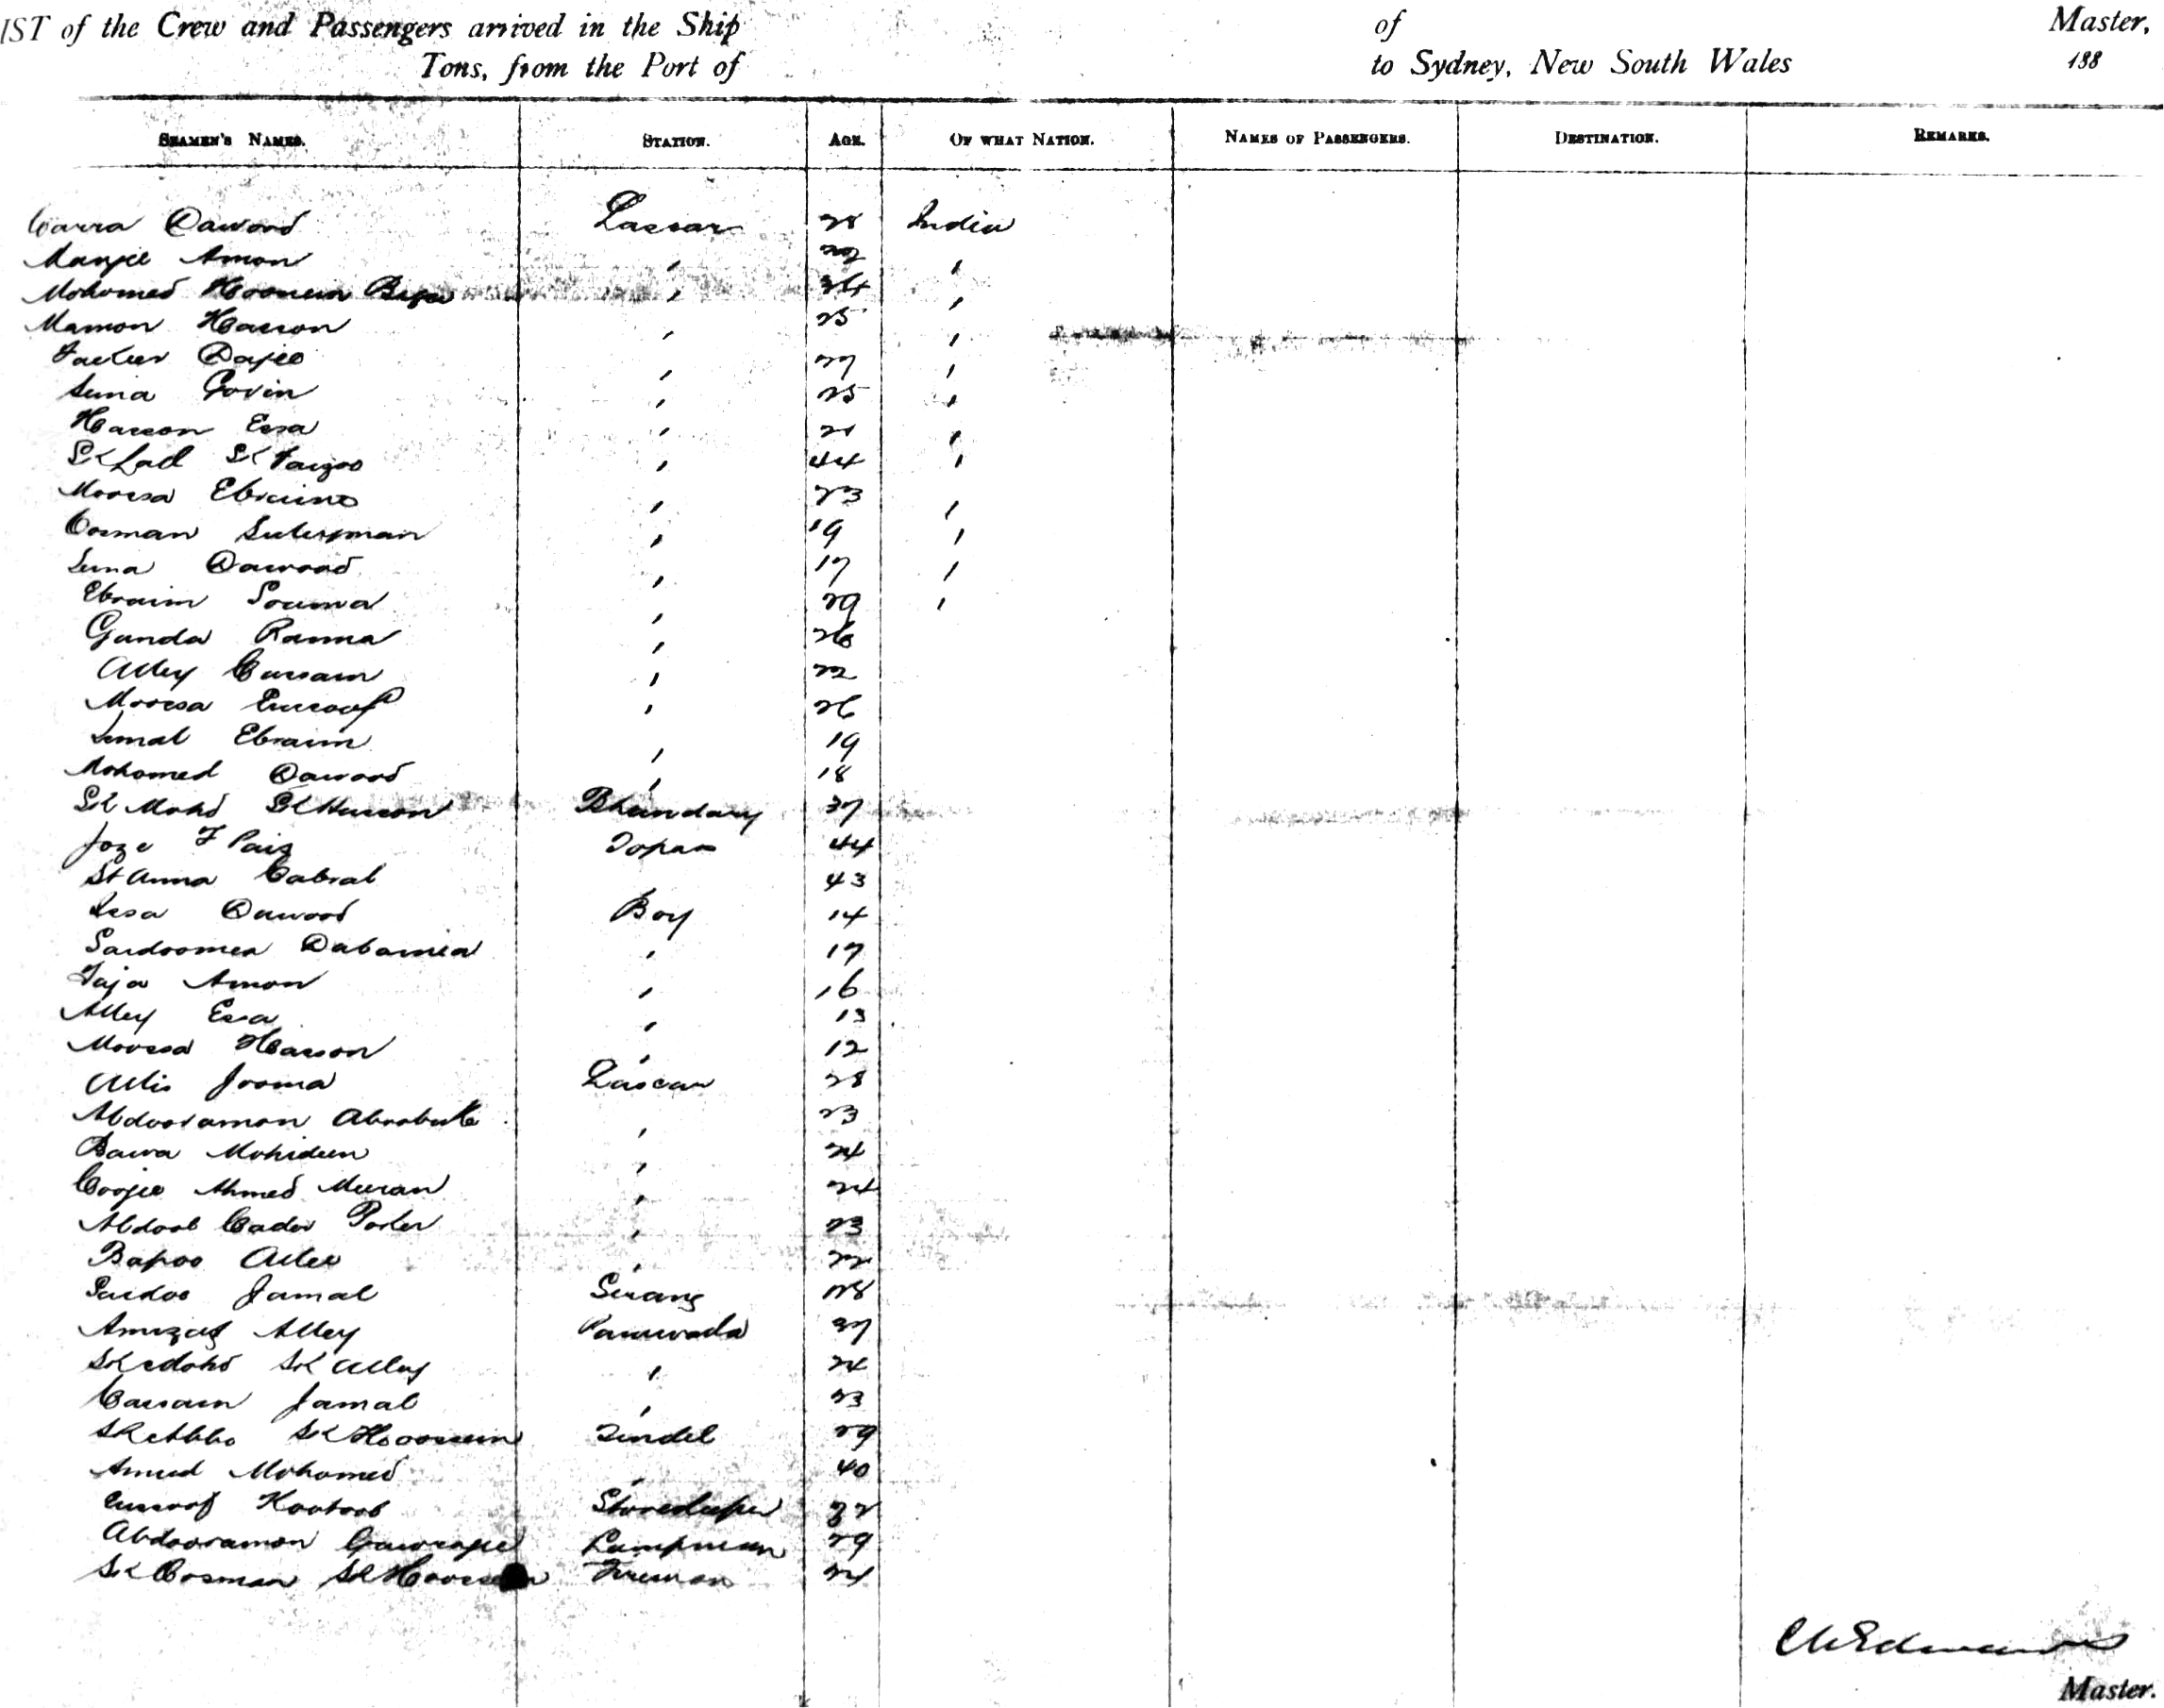 IST of the Crew and Passengers arrived in the Ship of Master,
Tons, from the Port of to Sydney, New South Wales 188
SEAMEN'S NAMES. STATION. AGE. OF WHAT NATION. NAMES OF PASSENGERS. DESTINATION. REMARKS.
Carra Dawood Lascar 28 India
Manjee Amon ,
Mohomed Hoosein , 34 ,
Mamon Hasson , 25 ,
Dajee , 27 ,
Suna Govin , 25 ,
Hasson Essa , 21 ,
SK Lall SK , 44 ,
Moossa Ebraim , 23 ,
Oosman Suleyman , 19 ,
Suna Dawood , 17 ,
Ebraim , 29 ,
Gunda Ranna , 26
Alley Cassam , 22
Moossa Eusoof , 26
Ismal Ebraim , 19
Mohomed Dawood , 18
SK Mohd SK Husson Bhandary 37
Joze F Pais Topas 44
St Anna Cabral 43
Issa Dawood Boy 14
Saidoomea Dabamea , 17
Amon , 16
Alley Essa , 13
Moossa Hasson , 12
Allie Jooma Lascar 28
Abdooramon , 23
Bawa Mohideen , 24
Ahmed Meeran , 24
Abdool Cader , 23
Bapoo Allee , 22
Saidoo Jamal Serang
Alley 37
SK Mohd SK Alley , 24
Cassam Jamal , 23
SK Abbo SK Hoossein Tindel 29
Amed Mohomed , 40
Eusoof Kootoob Storekeeper 32
Abdooramon Lampman 29
SK Oosman SK Hoossein Fireman 24
Edwards
Master.